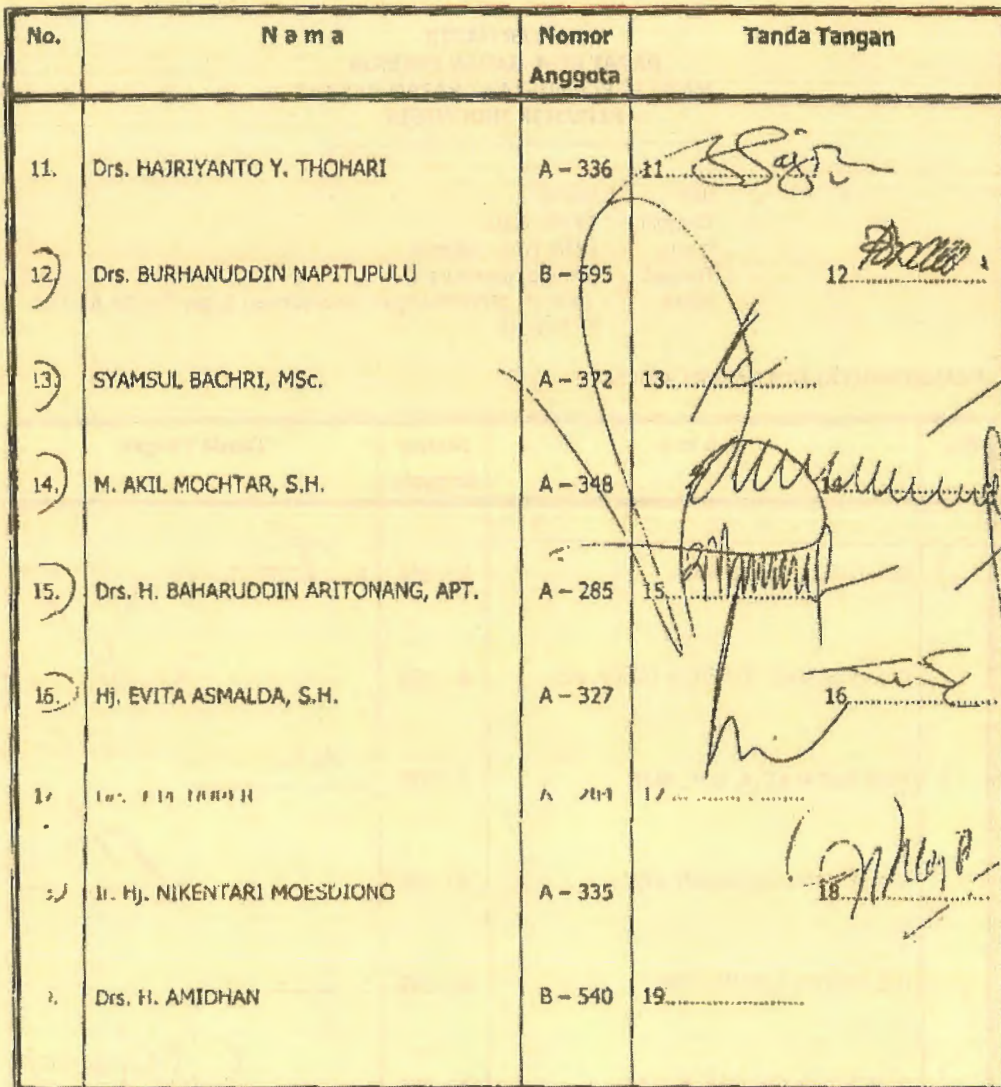 No. Nama Nomor Anggota Tanda Tangan
11. Drs. HAJRIYANTO Y. THOHARI A – 336 11..................
12. Drs. BURHANUDDIN NAPITUPULU B – 595 12..................
13. SYAMSUL BACHRI, MSc. A – 372 13..................
14. M. AKIL MOCHTAR, S.H. A – 348 14..................
15. Drs. H. BAHARUDDIN ARITONANG, APT. A – 285 15..................
16. Hj. EVITA ASMALDA, S.H. A – 327 16..................
17..................
Ir. Hj. NIKENTARI MOESDIONO A – 335 18..................
Drs. H. AMIDHAN B – 540 19..................